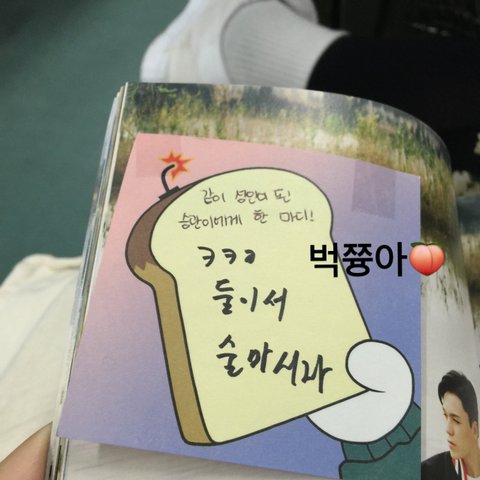 같이 성인이 된
승관이에게 한 마디!
ㅋㅋㅋ
둘이서
술마시자
벅쮸아🍑